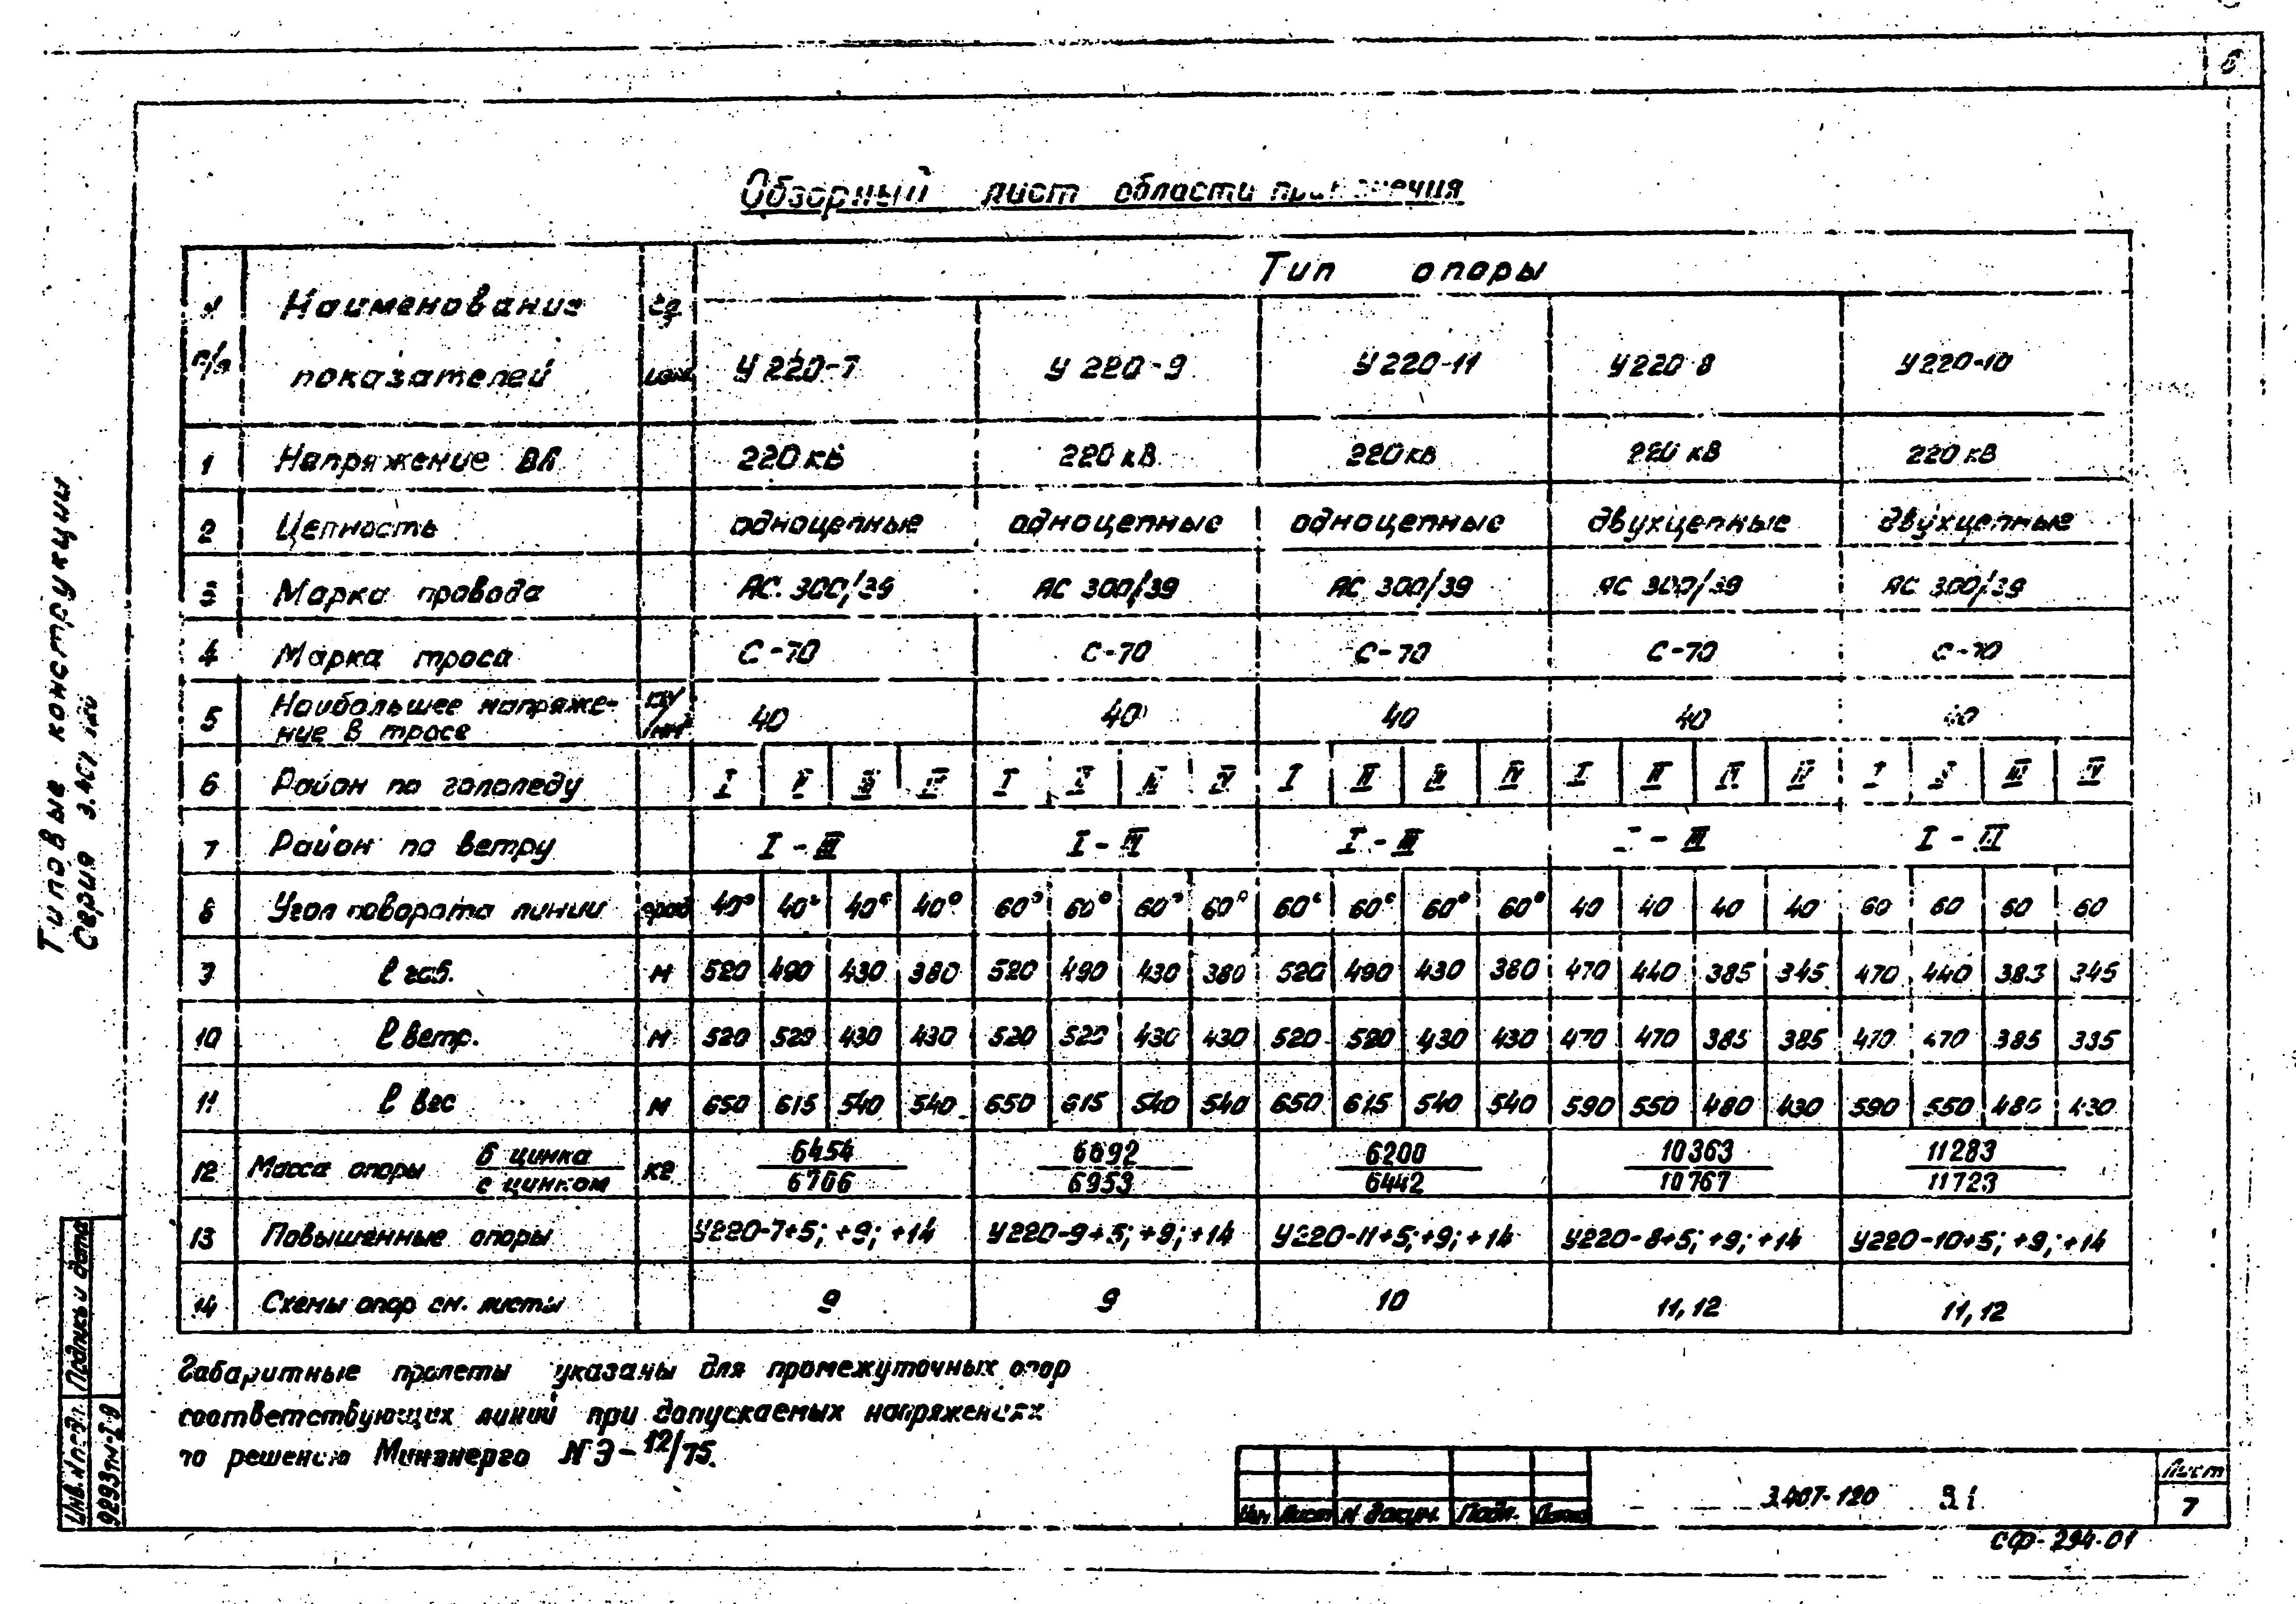 6
Обзорный лист области применения
N п/п Наименование показателей Ед. изм. Тип опоры
У 220-7 У 220-9 У 220-11 У 220 8 У 220-10
1 Напряжение ВЛ 220 кВ 220 кВ 220 кВ 220 кВ 220 кВ
2 Цепность одноцепные одноцепные одноцепные двухцепные двухцепные
3 Марка провода АС 300/39 АС 300/39 АС 300/39 АС 300/39 АС 300/39
4 Марка троса С-70 С-70 С-70 С-70 С-70
5 Наибольшее напряже-
ние в тросе 40 40 40 40 40
6 Район по гололеду I II III IV I II III IV I II III IV I II III IV I II III IV
7 Район по ветру I - III I - III I - III I - III I - III
8 Угол поворота линии град 40° 40° 40° 40° 60° 60° 60° 60° 60° 60° 60° 60° 40 40 40 40 60 60 60 60
9 ℓ габ. м 520 490 430 380 520 490 430 380 520 490 430 380 470 440 385 345 470 440 385 345
10 ℓ ветр. м 520 520 430 430 520 520 430 430 520 520 430 430 470 470 385 385 470 470 385 385
11 ℓ вес м 650 615 540 540 650 615 540 540 650 615 540 540 590 550 480 430 590 550 480 430
12 Масса опоры б цинка кг 6454 6692 6200 10363 11283
с цинком 6706 6953 6442 10767 11723
13 Повышенные опоры У220-7+5; +9; +14 У220-9+5; +9; +14 У220-11+5; +9; +14 У220-8+5; +9; +14 У220-10+5; +9; +14
14 Схемы опор см. листы 9 9 10 11, 12 11, 12
Габаритные пролеты указаны для промежуточных опор
соответствующих линий при допускаемых напряжениях
по решению Минэнерго N Э-12/75.
Типовые конструкции
Серия 3.407-120
Подпись и дата
Инв. N подл.
9293тм-I-9
Изм Лист N докум. Подп. Дата
3.407-120
Лист
7
СФ-294-01